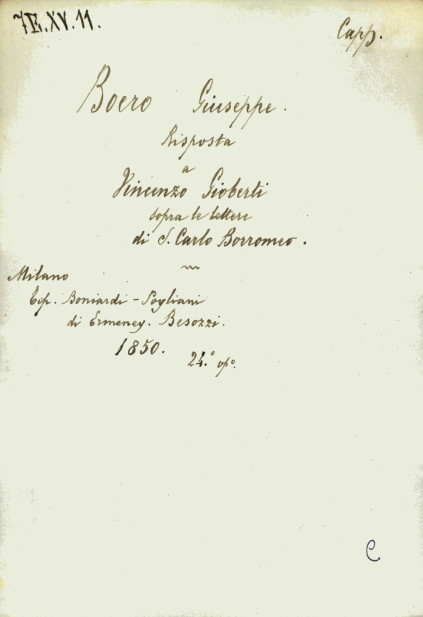 7E.XV.11.
Capp.
Boero Giuseppe.
Risposta
a
Vincenzo Gioberti
sopra le lettere
di S. Carlo Borromeo.
Milano
Tip. Boniardi-Pogliani
di Ermeneg. Besozzi.
1850. 24.° op°.
C